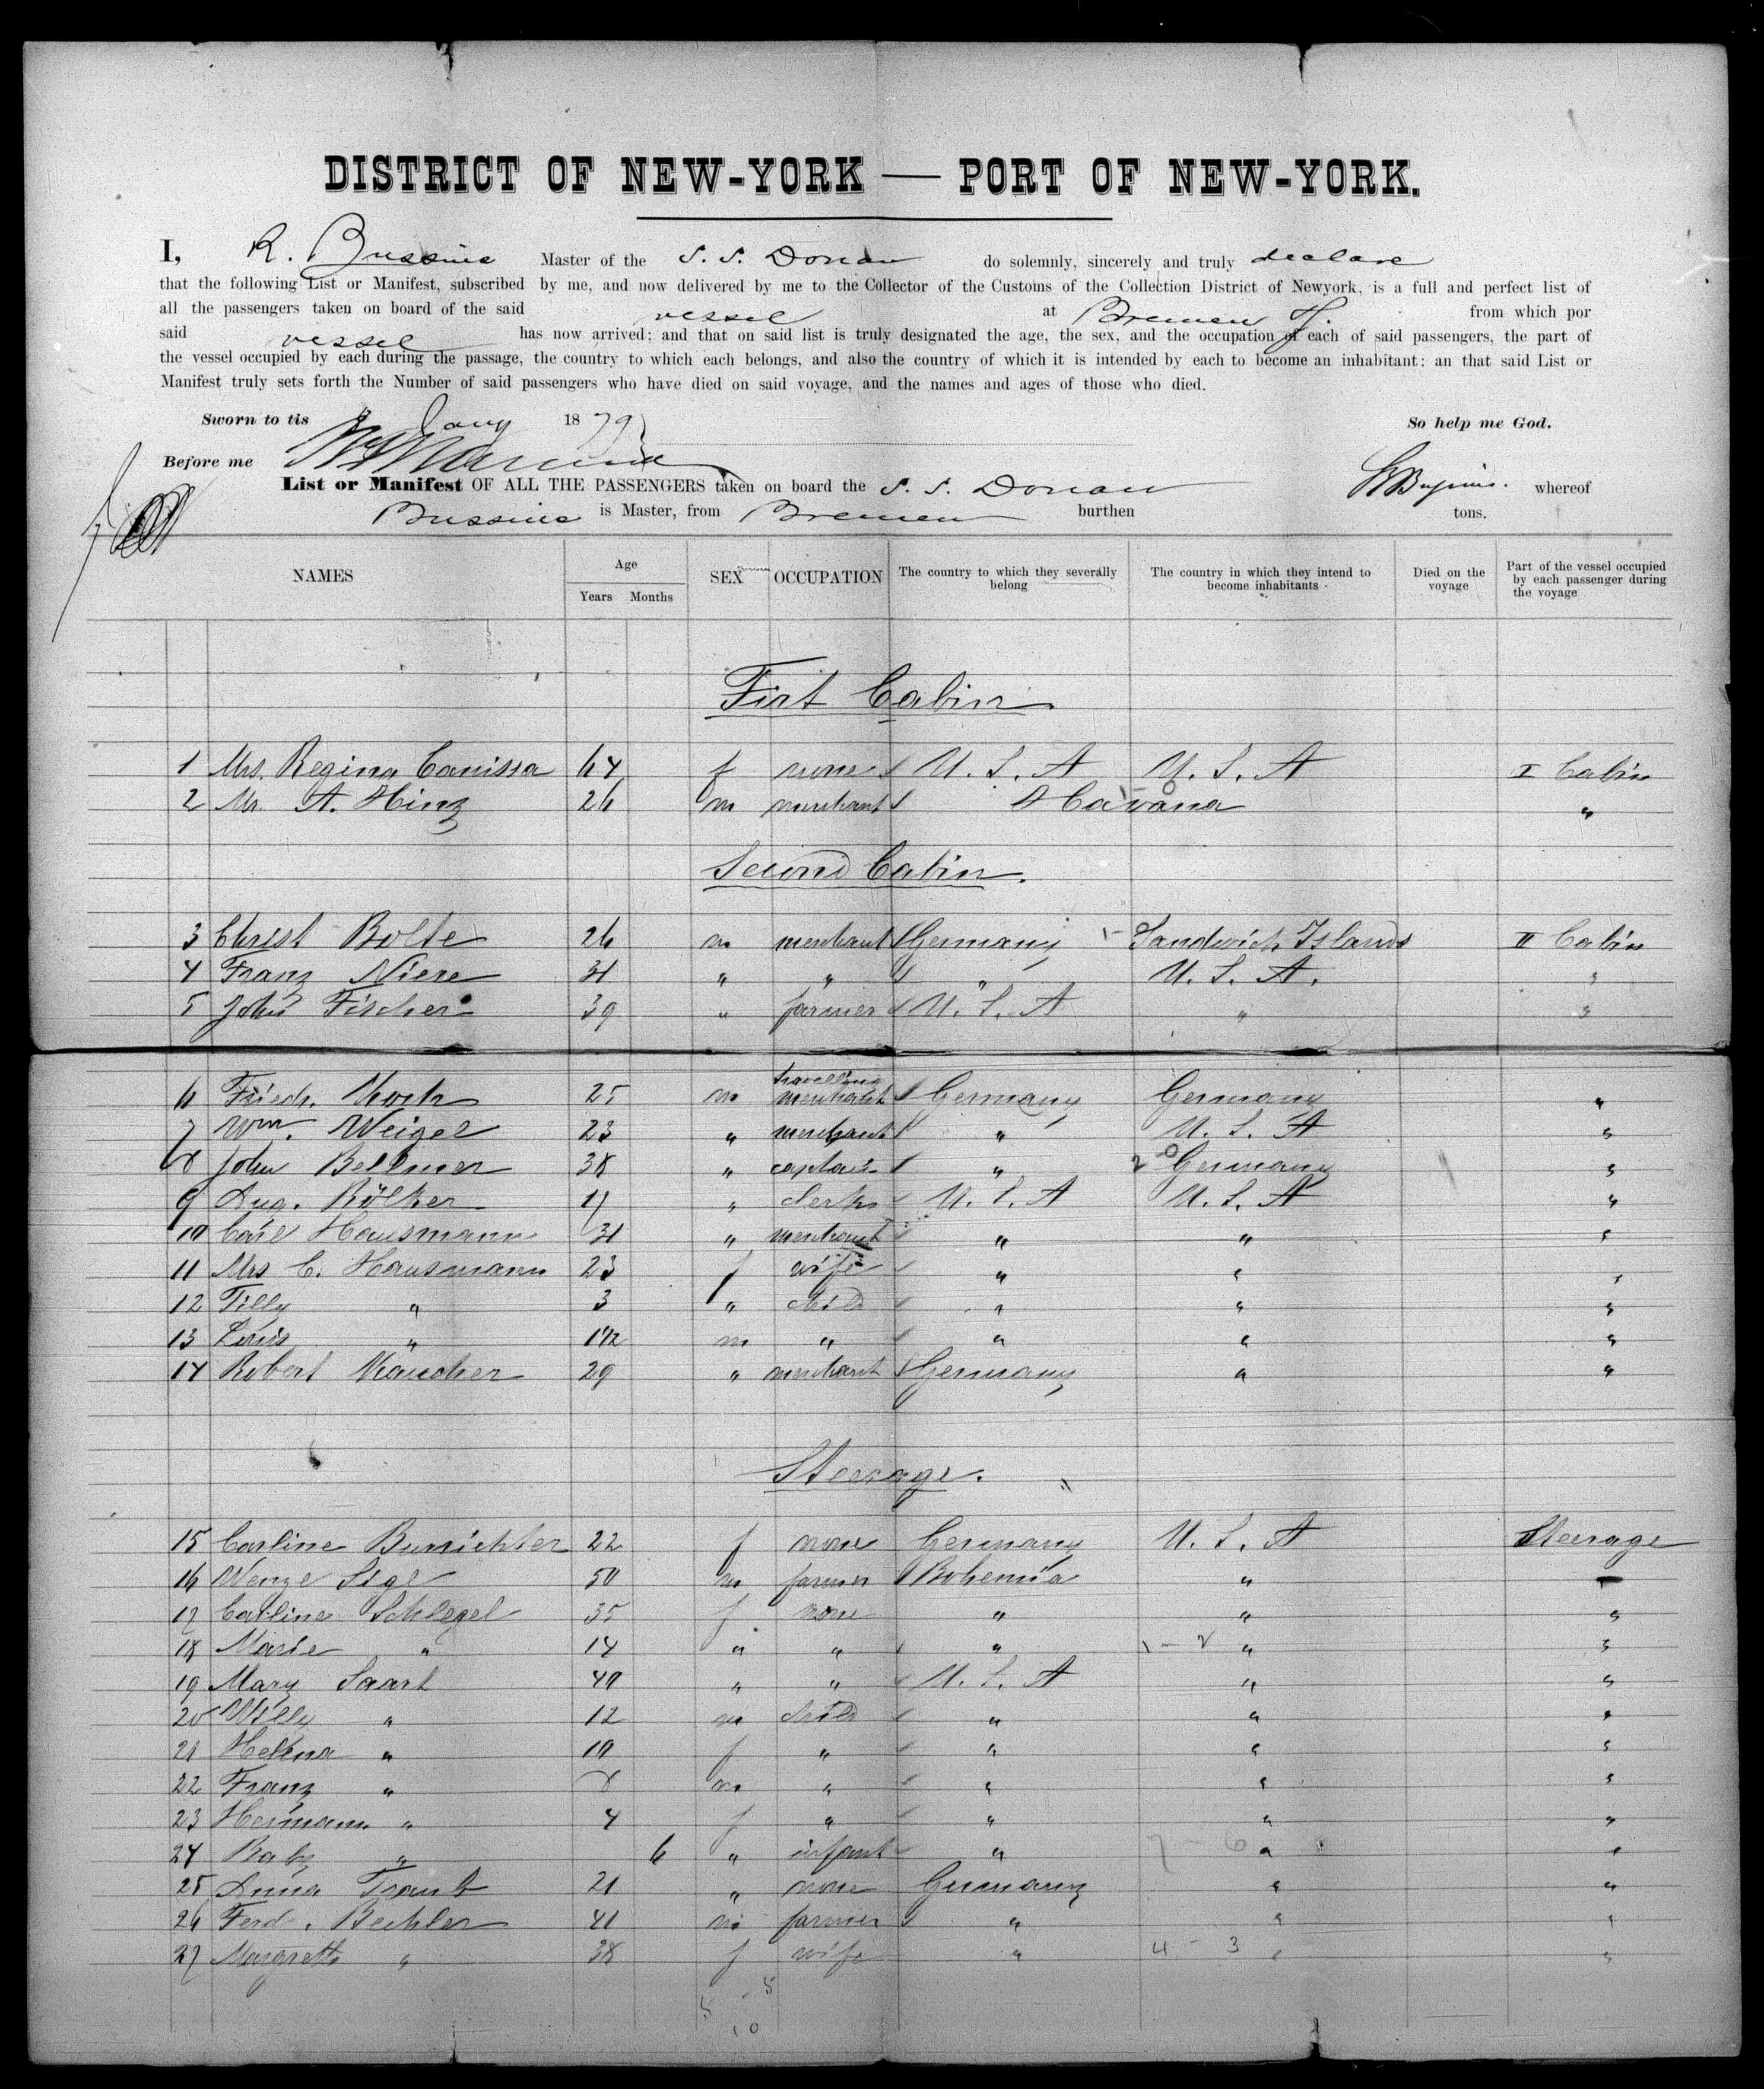 DISTRICT OF NEW-YORK — PORT OF NEW-YORK.
I, R. Bussius Master of the S. S. Donau do solemnly, sincerely and truly declare
that the following List or Manifest, subscribed by me, and now delivered by me to the Collector of the Customs of the Collection District of Newyork, is a full and perfect list of
all the passengers taken on board of the said vessel at Bremen from which por
said vessel has now arrived; and that on said list is truly designated the age, the sex, and the occupation of each of said passengers, the part of
the vessel occupied by each during the passage, the country to which each belongs, and also the country of which it is intended by each to become an inhabitant: an that said List or
Manifest truly sets forth the Number of said passengers who have died on said voyage, and the names and ages of those who died.
Sworn to tis Jany 1879 So help me God.
Before me
List or Manifest OF ALL THE PASSENGERS taken on board the S. S. Donau whereof
Bussius is Master, from Bremen burthen tons.
NAMES Age Years Months SEX OCCUPATION The country to which they severally belong The country in which they intend to become inhabitants Died on the voyage Part of the vessel occupied by each passenger during the voyage
First Cabin
1 Mrs. Regina Canissa 64 f none U. S. A U. S. A I Cabin
2 Mr. A. Hinz 26 m merchant Havana "
Second Cabin.
3 Christ Bolte 26 m merchant Germany Sandwich Islands II Cabin
4 Franz Niere 31 " " " U. S. A. "
5 John Fischer 39 " farmer U. S. A " "
6 Friedr. 25 m travelling merchant Germany Germany "
7 Wm. Weigel 23 " merchant " U. S. A "
8 John Bellmer 38 " captain " Germany "
9 Aug. Rölker 17 " clerk U. S. A U. S. A "
10 Carl Hausmann 31 " merchant " " "
11 Mrs C. Hausmann 23 f wife " " "
12 Tilly " 3 " child " " "
13 Louis " 1 1/2 m " " " "
14 Robert 29 " merchant Germany " "
Steerage.
15 Carline Burrichter 22 f none Germany U. S. A Steerage
16 Wenze Sigl 50 m farmer Bohemia " "
17 Carline Schlegel 35 f none " " "
18 Marie " 14 " " " 1 - 2 " "
19 Mary Saart 40 " " U. S. A " "
20 Willy " 12 m child " " "
21 Helena " 10 f " " " "
22 Franz " 8 m " " " "
23 Hermann " 4 f " " " "
24 Baby " 6 " infant " 7 - 6 " "
25 Anna Traub 21 " none Germany " "
26 Ferd. Bechler 41 m farmer " " "
27 Margreth " 38 f wife " 4 - 3 " "
5 5
10